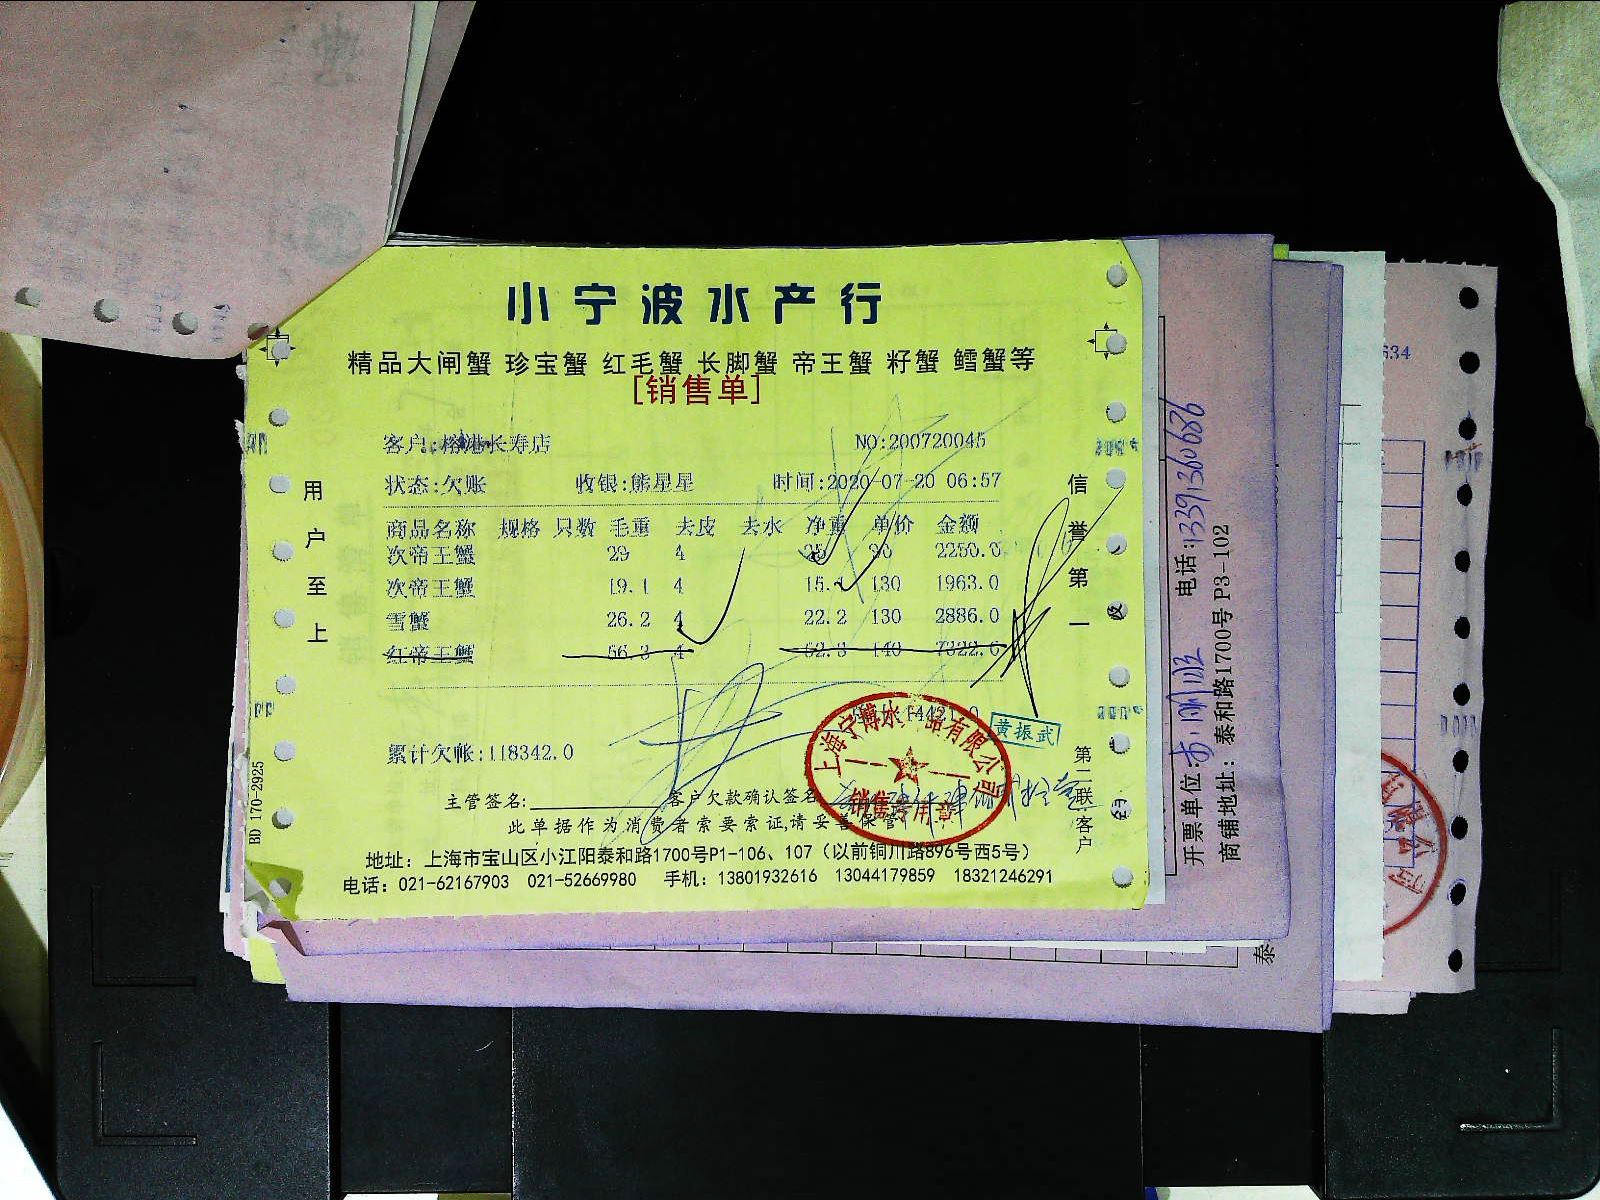 小宁波水产行
精品大闸蟹 珍宝蟹 红毛蟹 长脚蟹 帝王蟹 籽蟹 鳕蟹等
[销售单]
客户:榕港长寿店 NO:200720045
状态:欠账 收银:熊星星 时间:2020-07-20 06:57
商品名称 规格 只数 毛重 去皮 去水 净重 单价 金额
次帝王蟹 29 4 25 90 2250.0
次帝王蟹 19.1 4 15.1 130 1963.0
雪蟹 26.2 4 22.2 130 2886.0
红帝王蟹 56.3 4 52.3 140 7322.0
累计欠帐:118342.0
黄振武
上海宁博水产品有限公司
销售专用章
主管签名: 客户欠款确认签名
此单据作为消费者索要索证,请妥善保管
地址：上海市宝山区小江阳泰和路1700号P1-106、107（以前铜川路896号西5号）
电话：021-62167903 021-52669980 手机：13801932616 13044179859 18321246291
用户至上
信誉第一
第二联:客户
BD 170-2925
开票单位: 电话:13391360686
商铺地址：泰和路1700号 P3-102
634
泰